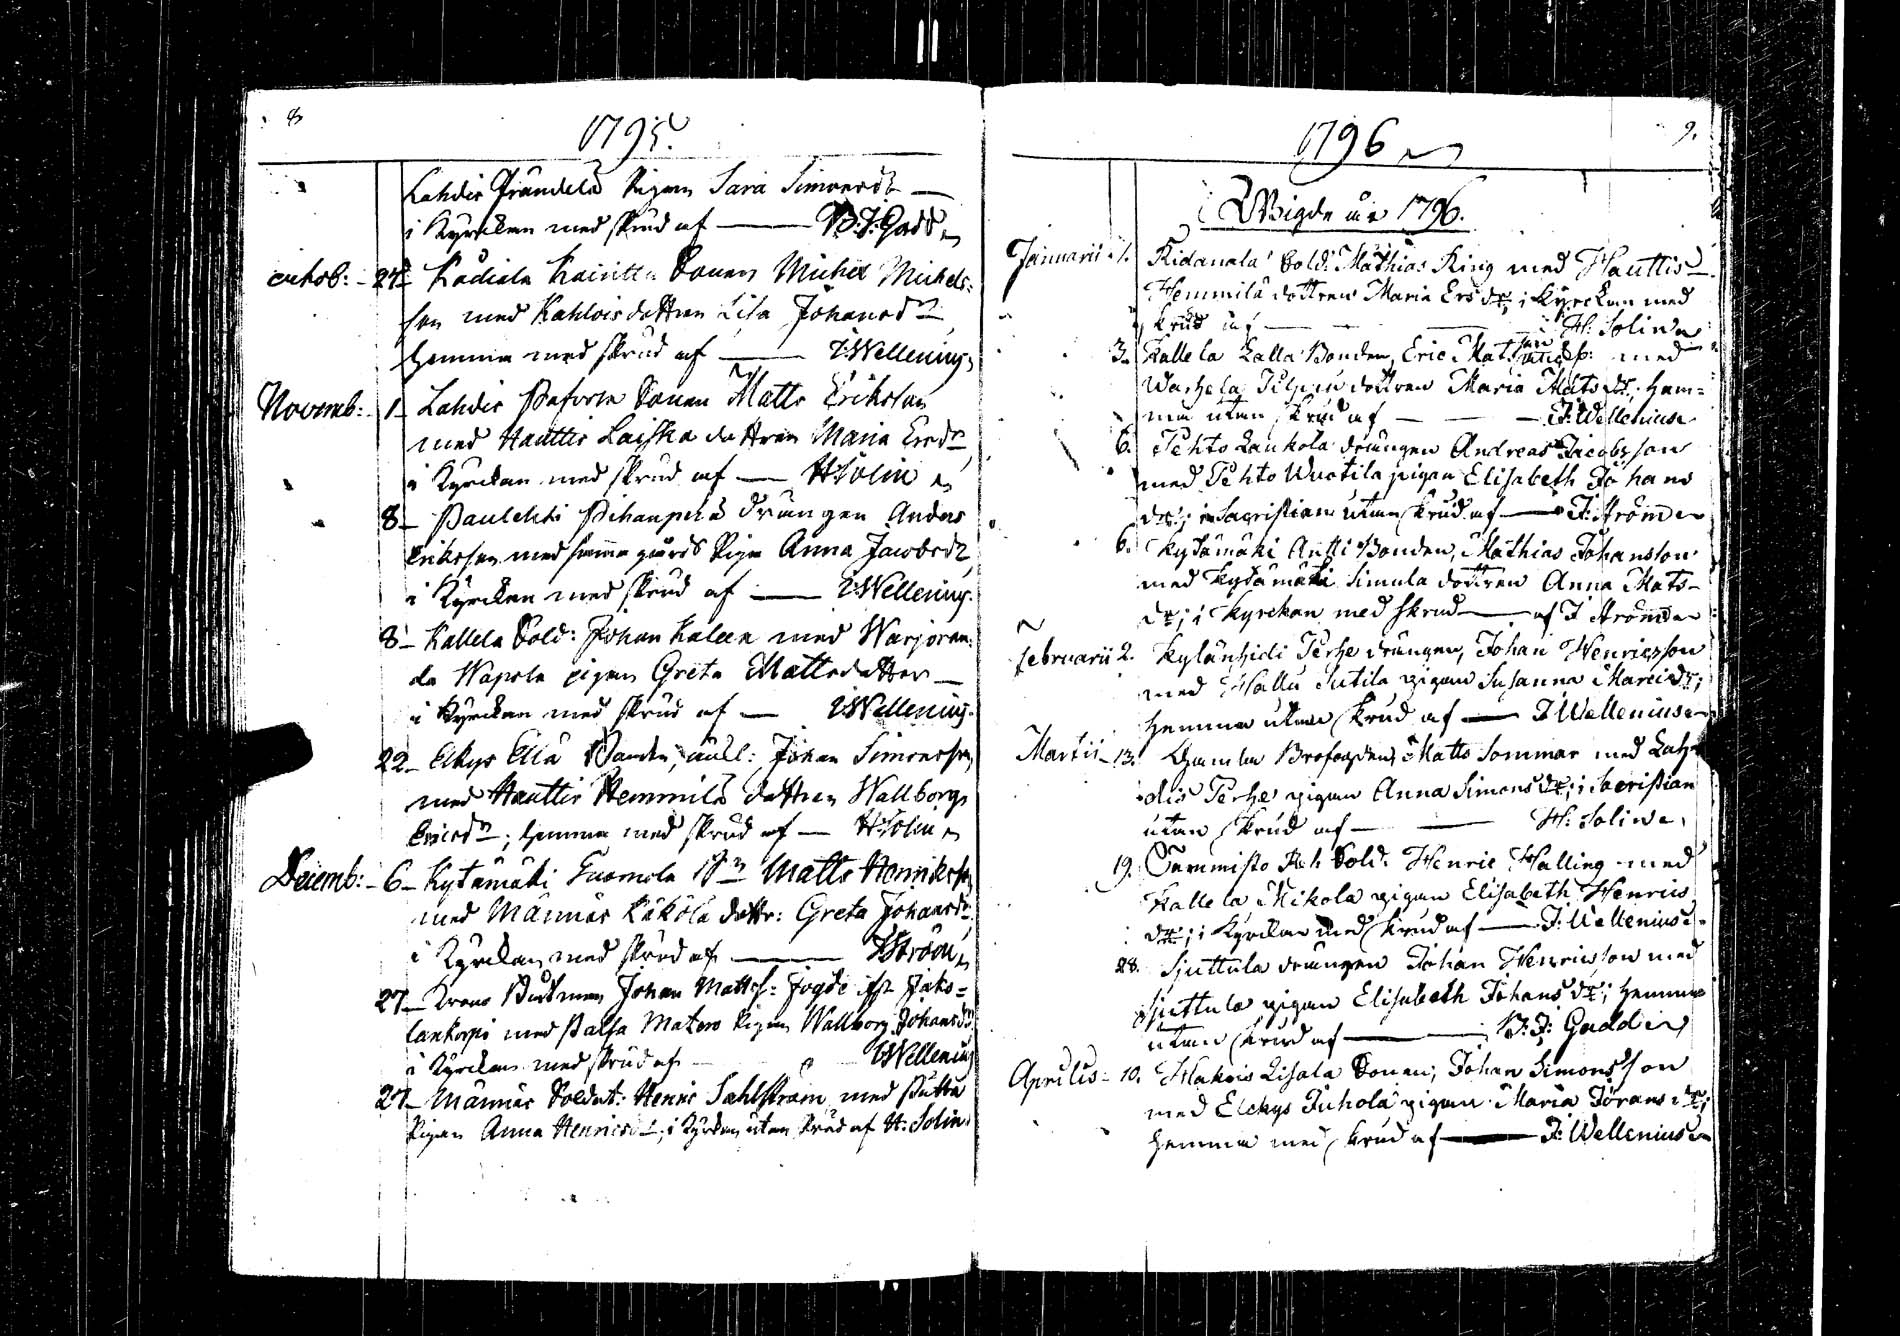 8
1795.
Lahdis Prändälä Pigan Sara Simonsdr
i Kyrckan med skrud af B: J: Gadd
octob: 24 Kadiala Sonen Michel Michels-
son med Kahlois dottren Lisa Johansdr
hemma med skrud af J Wellenius
Novemb: 1 Lahdis Sonen Matts Eriksson
med Hauttis Laiska dottren Maria Ersdr
i Kyrckan med skrud af H Solin
8 Paulchti drängen Anders
Eriksson med samma gårds Piga Anna Jacobsdr
i Kyrckan med skrud af J Wellenius
8 Kallela Sold: Johan Kaleen med Warjoran-
da Wapola pigan Greta Mattsdotter
i Kyrckan med skrud af J Wellenius
22 Elkys Ella Bonden, Johan Simonsson
med Hauttis Hemmilä dottren Wallborg
Ericsdr; hemma med skrud af H Solin
Decemb: 6 Kytämäki Tuomola Matts Henriksson
med Männäs Käkölä dottr: Greta Johansdr
i Kyrckan med skrud af J Ström
27 Krono Johan Mattss: Fogde
med Palsa Matero Pigan Wallborg Johansdr
i Kyrckan med skrud af J Wellenius
27 Männäs Soldat: Henric Sahlström med
Pigan Anna Henricsdr; i Kyrckan utan skrud af H. Solin
1796
9.
Wigde år 1796.
Januarii 1. Kidanala Sold: Mathias Ring med Hauttis
Hemmilä dottren Maria Ersdr; i Kyrckan med
skrud af H: Solin
3. Kallela Lalla Bonden, Eric med
dottren Maria Matsdr; hem-
ma utan skrud af J: Wellenius
6. Tehto Laukola drängen Andreas Jacobsson
med Tehto Wuotila pigan Elisabeth Johans
dr; i Sacristian utan skrud af J: Ström
6. Kytämäki Antti Bonden, Mathias Johansson
med Kytämäki Simula dottren Anna Mats-
dr; i Kyrckan med skrud af J Ström
Februarii 2. Kylänhidi Perhe drängen, Johan Henricsson
med Hallu Sutila pigan Susanna Marcidr;
hemma utan skrud af J Wellenius
Martii 13. Gamla Brofogden Matts Sommar med Lah-
dis Perhe pigan Anna Simonsdr; i Sacristian
utan skrud af H: Solin
19. Sold: Henric Halling med
Kallela Mikola pigan Elisabeth Henrics
dr; i Kyrckan med skrud af J: Wellenius
28. Sjuttula drängen Johan Henricsson med
Sjuttula pigan Elisabeth Johansdr; hemma
utan skrud af B: J: Gadd
Aprilis 10. Hakois Lisala Sonen, Johan Simonsson
med Elckys Juhola pigan Maria Jöransdr;
hemma med skrud af J: Wellenius